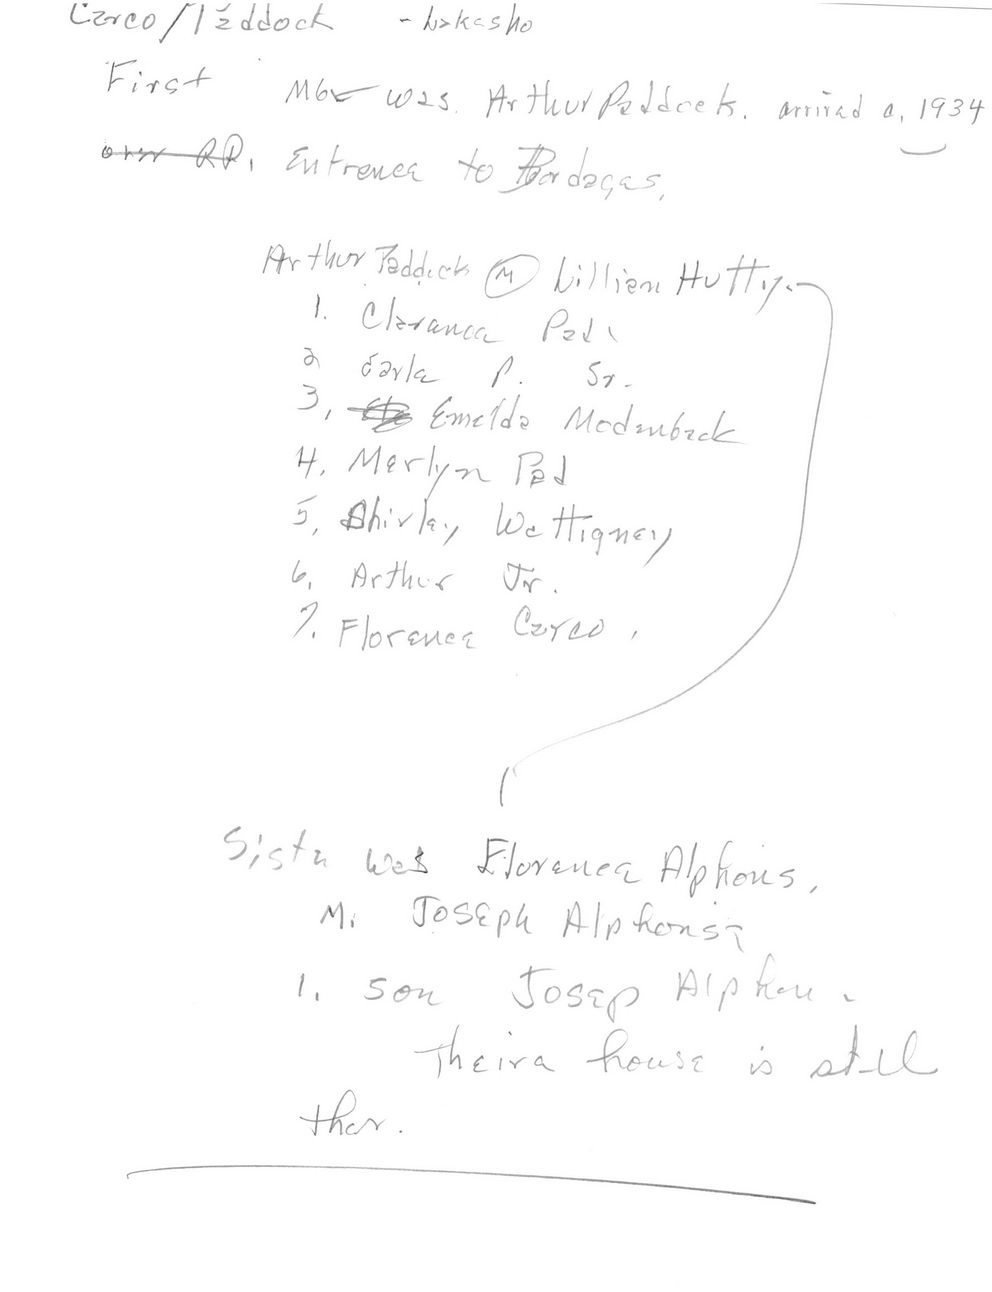 Carco/Paddock - Lakasho
First Mbr was. Arthur Paddock. arrived a. 1934
over RR. Entrence to Bordages.
Arthur Paddock (M) Lillian Hutty.
1. Clarance Pad.
2 Earle P. Sr.
3. Emelda Modenback
4. Merlyn Pad
5. Shirley Wattigney
6. Arthur Jr.
7. Florence Carco.
Sister was Florence Alphons.
M. Joseph Alphonse
1. son Josep Alphon.
Theira house is still
ther.